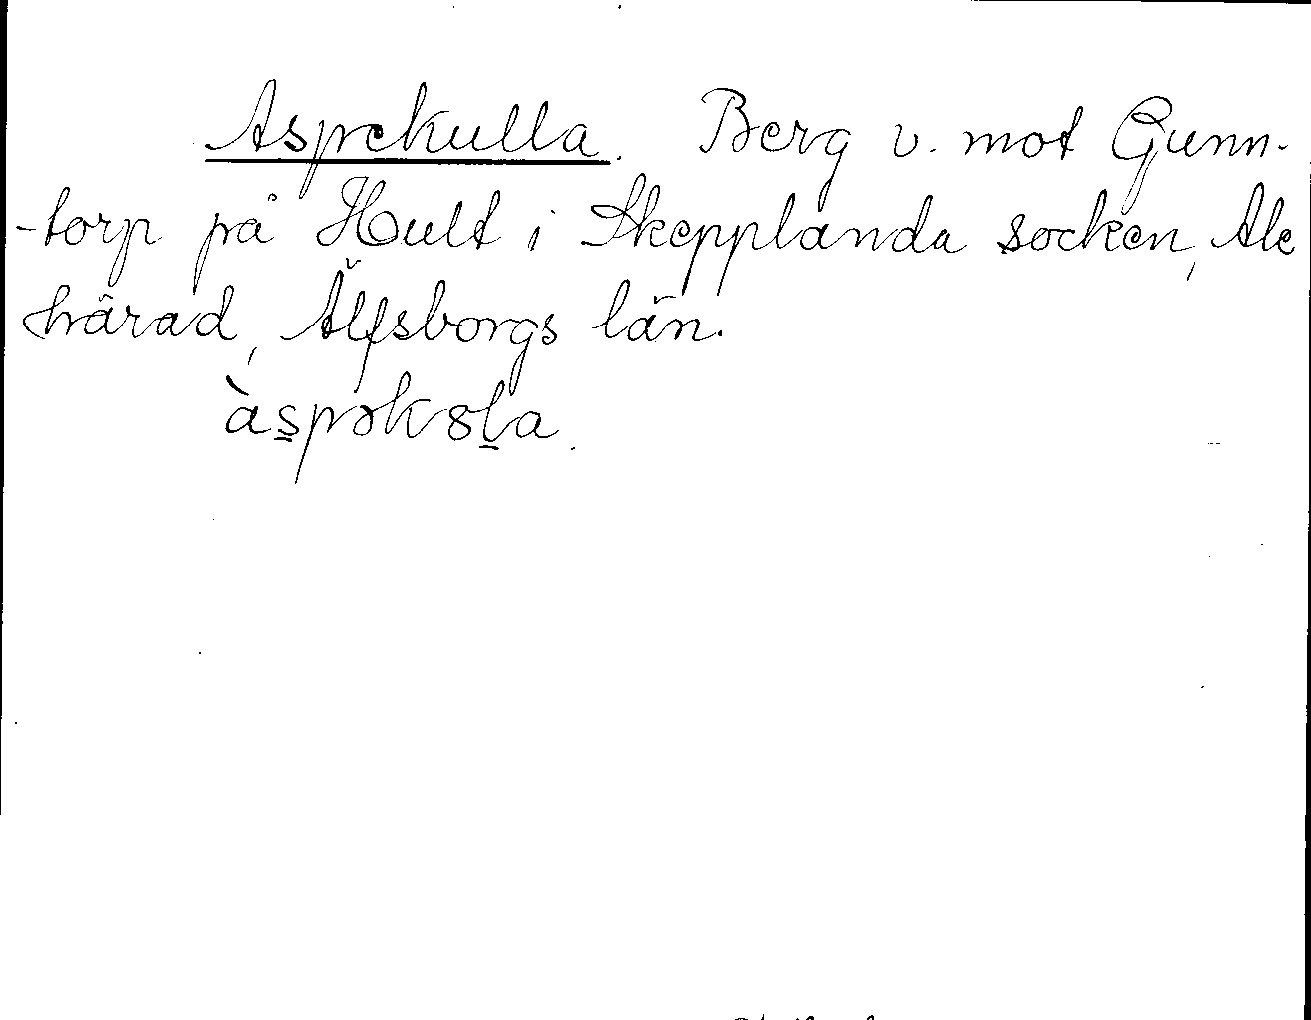 Aspekulla. Berg v. mot Gunn-
-torp på Hult i Skepplanda socken, Ale
härad, Älfsborgs län.
àspəkȣla.